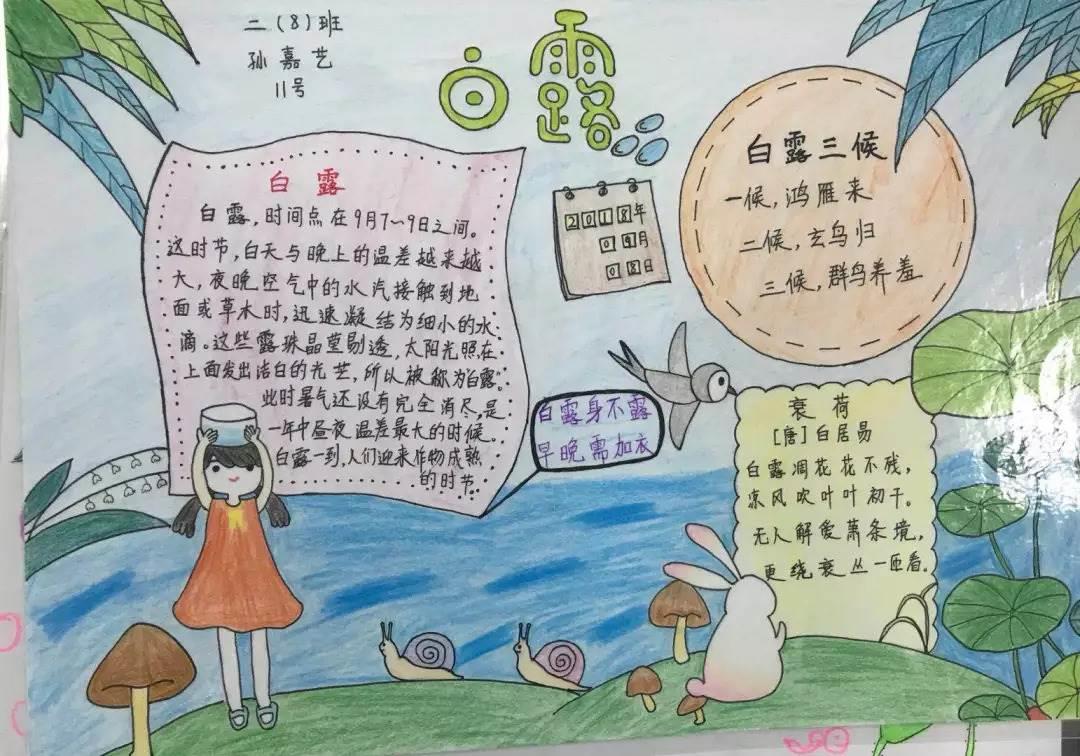 二(8)班
孙嘉艺
11号
白露
白露
白露,时间点在9月7~9日之间。
这时节,白天与晚上的温差越来越
大,夜晚空气中的水汽接触到地
面或草木时,迅速凝结为细小的水
滴。这些露珠晶莹剔透,太阳光照在
上面发出洁白的光芒,所以被称为"白露"。
此时暑气还没有完全消尽,是
一年中昼夜温差最大的时候。
白露一到,人们迎来作物成熟
的时节。
2018年
09月
08日
白露三候
一候,鸿雁来
二候,玄鸟归
三候,群鸟养羞
白露身不露
早晚需加衣
衰荷
[唐]白居易
白露凋花花不残,
凉风吹叶叶初干。
无人解爱萧条境,
更绕衰丛一匝看。